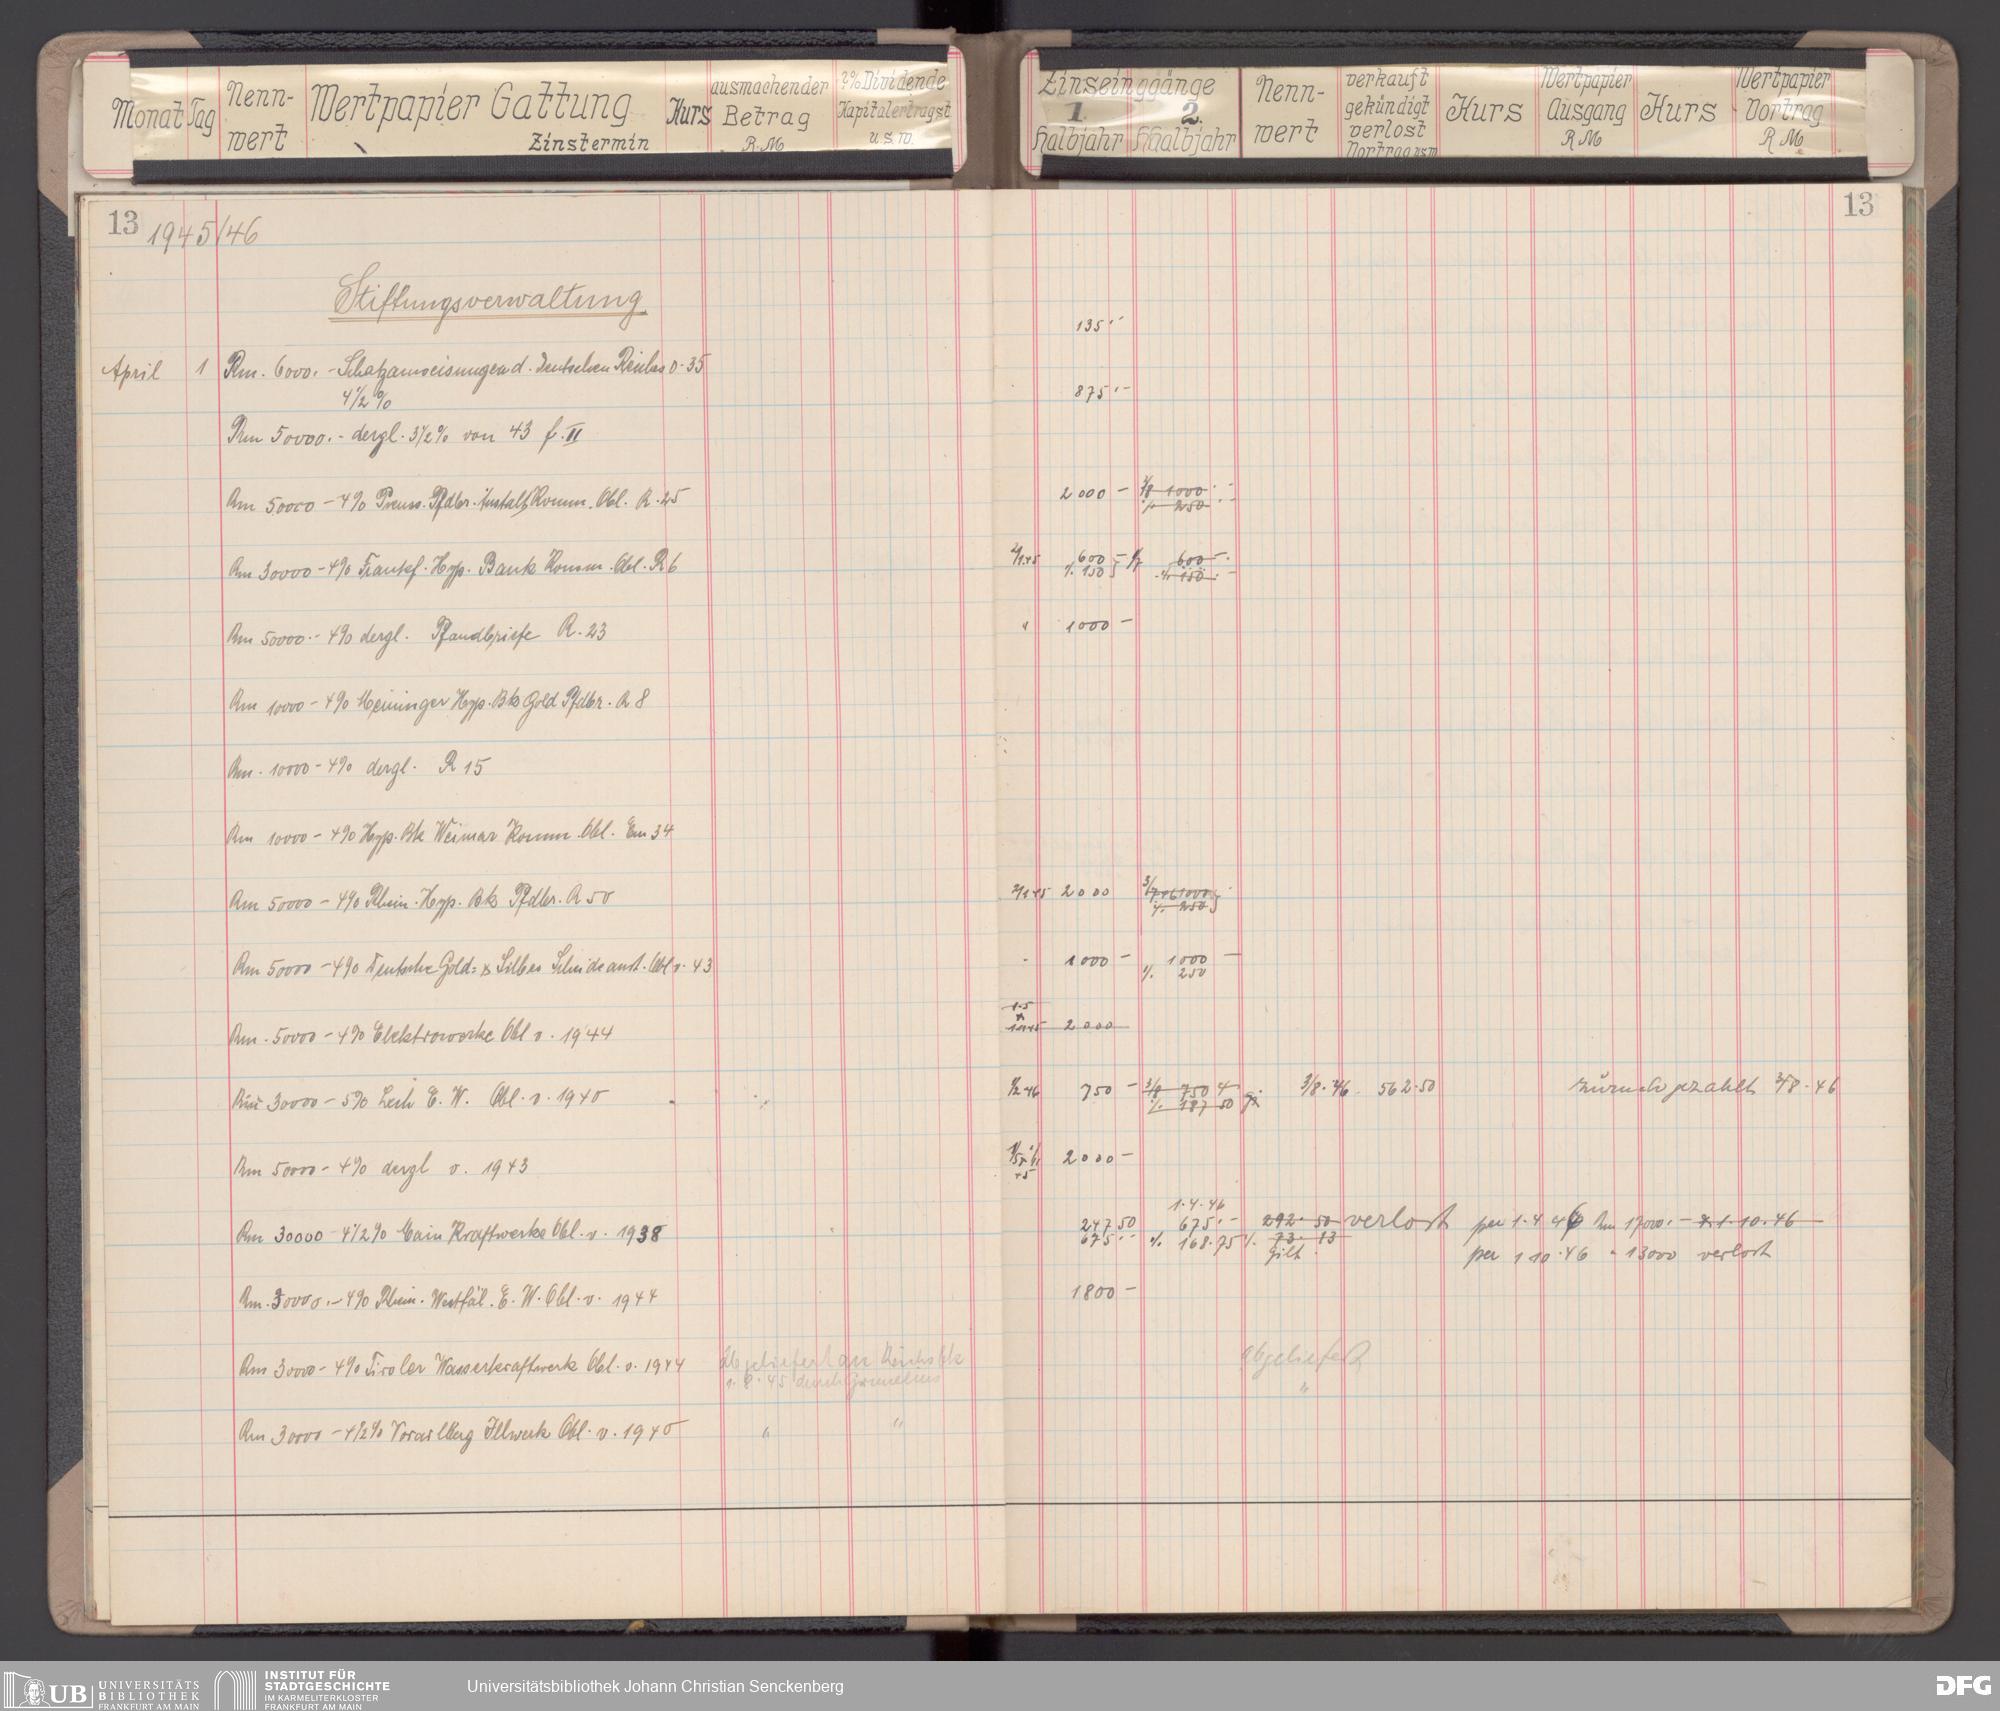 Monat Tag Nenn- Wertpapier Gattung Kurs ausmachender 2% Dividende
wert Zinstermin Betrag Kapitalertragst
R.M. u.s.w.
Zinseinggänge Nenn- verkauft Kurs Wertpapier Kurs Wertpapier
1. 2. wert gekündigt Ausgang Vortrag
Halbjahr Halbjahr verlost R M R M
Vortrag usw
13 1945/46
Stiftungsverwaltung
April 1 Rm. 6000.- Schatzanweisungen d. Deutschen Reiches v. 35
4 1/2 %
Rm 50000.- dergl. 3 1/2 % von 43 f. II
Rm 50000 - 4% Preuss. Pfdbr. Anstalt Komm. Obl. R. 25
Rm 30000 - 4% Frankf. Hyp. Bank Komm. Obl. R 6
Rm 50000.- 4% dergl. Pfandbriefe R. 23
Rm 10000 - 4% Meininger Hyp. Bk Gold Pfdbr. R 8
Rm. 10000 - 4% dergl. R 15
Rm 10000 - 4% Hyp. Bk Weimar Komm. Obl. Em 34
Rm 50000 - 4% Rhein. Hyp. Bk Pfdbr. R 50
Rm 50000 - 4% Deutsche Gold= & Silber Scheideanst. Obl v. 43
Rm. 50000 - 4% Elektrowerke Obl v. 1944
Rm 30000 - 5% Lech E. W. Obl. v. 1940
Rm 50000 - 4% dergl v. 1943
Rm 30000 - 4 1/2 % Main Kraftwerke Obl. v. 1938
Rm. 50000.- 4% Rhein. Westfäl. E. W. Obl. v. 1944
Rm 30000 - 4% Tiroler Wasserkraftwerk Obl. v. 1944 Abgeliefert an Reichsbk
45 durch
Rm 30000 - 4 1/2 % Vorarlberg Illwerk Obl. v. 1940 " "
13
135.-
875.-
2000 - 1000.-
% 250
2/1 45 600 - 600 -
% 150 % 150 -
" 1000 -
2/1 45 2000 1000
% 250
1000 - 1000 -
% 250
2000
1/2 46 750 - 3/8 750 3/8. 46 562.50 zurückgezahlt 3/8. 46
% 187 50
2000 -
1.4.46
247 50 675.- 292. 50 verlost per 1.4 46 Rm 17000.- 1.10.46
675.- % 168.75 % 73. 13 per 1 10.46 " 13000 verlost
gilt.
1800 -
abgeliefert
"
UB UNIVERSITÄTS
BIBLIOTHEK
FRANKFURT AM MAIN
INSTITUT FÜR
STADTGESCHICHTE
IM KARMELITERKLOSTER
FRANKFURT AM MAIN
Universitätsbibliothek Johann Christian Senckenberg
DFG